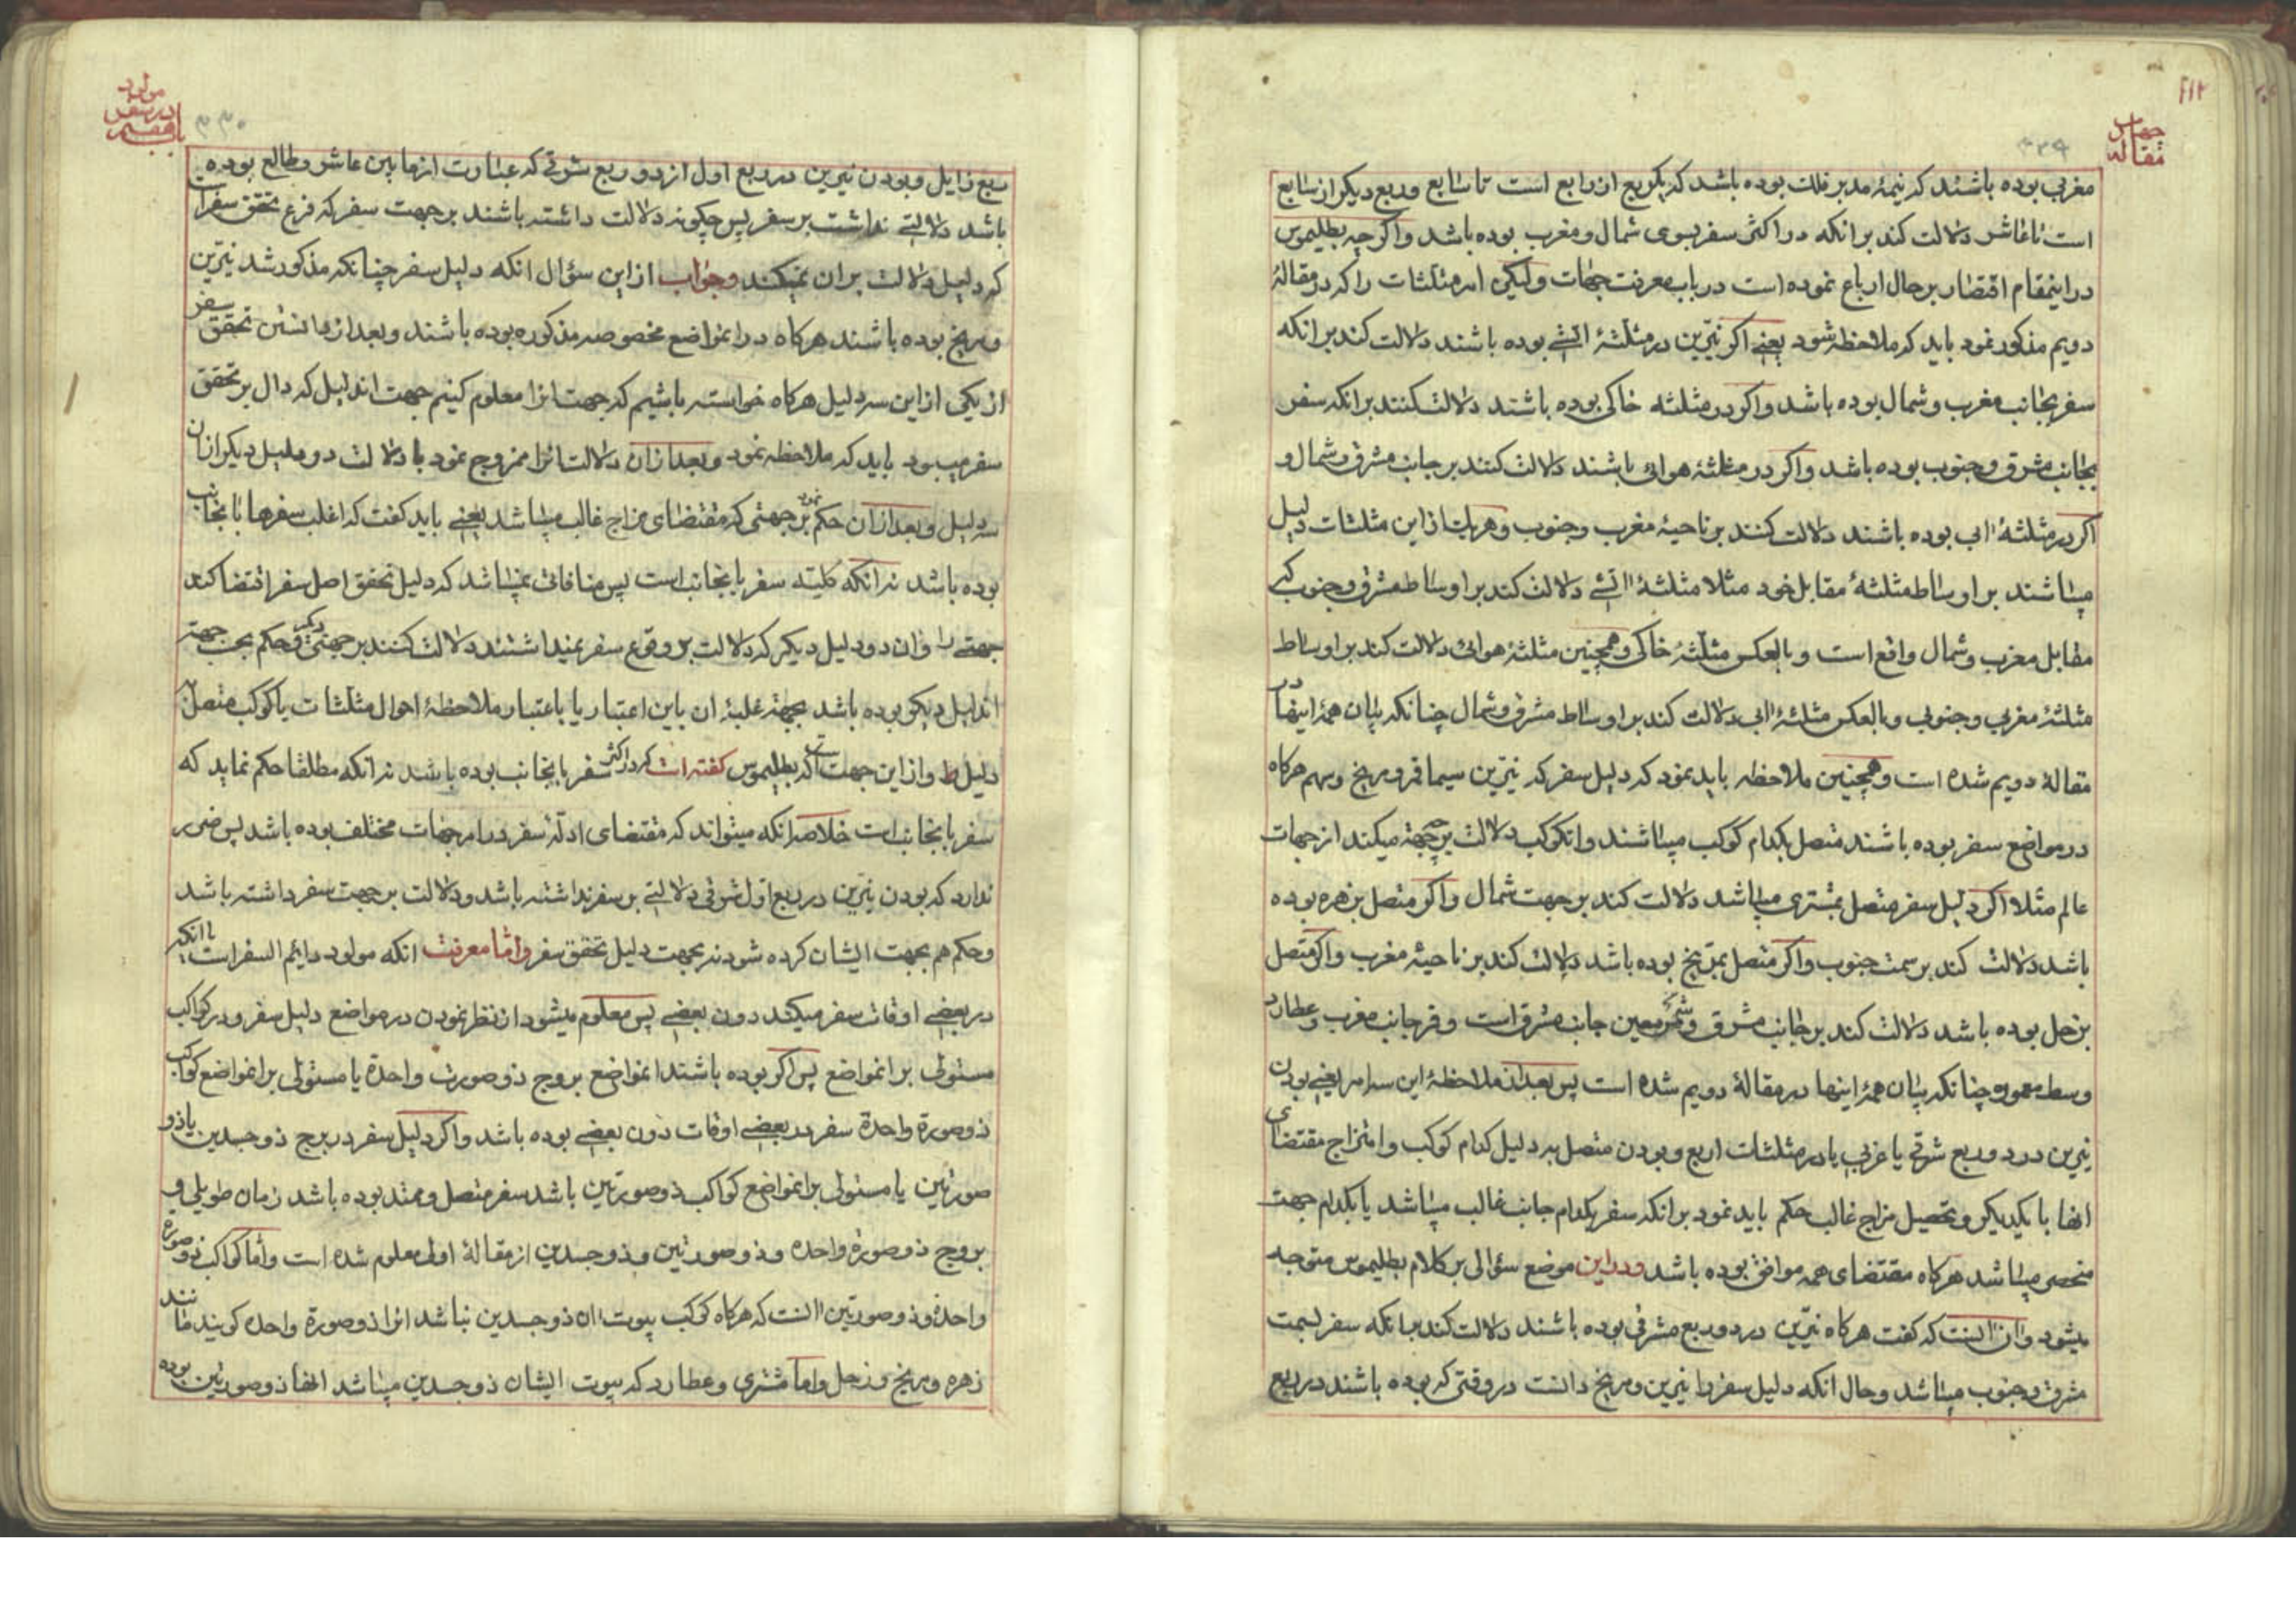 مقاله
چهارم
۳۲۹
مغربی بوده باشند که نیمهٔ مدبر فلك بوده باشد که یکربع ان رابع است تا سابع وربع دیکر از سابع
است تا عاشر دلالت کند برانکه در اکثر سفر بسوی شمال ومغرب بوده باشد واکر چه بطلیموس
دراینمقام اقتصار بر حال ارباع نموده است در باب معرفت جهات ولیکن امر مثلثات را که در مقالهٔ
دویم مذکور نمود باید که ملاحظه شود یعنی اکر نیرین در مثلثهٔ اتشی بوده باشند دلالت کند برانکه
سفر بجانب مغرب وشمال بوده باشد واکر در مثلثه خاکی بوده باشند دلالت کنند برانکه سفر
بجانب مشرق وجنوب بوده باشد واکر در مثلثهٔ هوائی باشند دلالت کنند بر جانب مشرق وشمال و
اکر در مثلثهٔ ابی بوده باشند دلالت کنند بر ناحیهٔ مغرب وجنوب وهریك از این مثلثات دلیل
میباشند بر اوساط مثلثهٔ مقابل خود مثلا مثلثهٔ اتشی دلالت کند بر اوساط مشرق وجنوب که
مقابل مغرب وشمال واقع است وبالعکس مثلثهٔ خاکی وهمچنین مثلثهٔ هوائی دلالت کند بر اوساط
مثلثهٔ مغربی وجنوبی وبالعکس مثلثهٔ ابی دلالت کند بر اوساط مشرق وشمال چنانکه بیان همهٔ اینها در
مقالهٔ دویم شده است وهمچنین ملاحظه باید نمود که دلیل سفر که نیرین سیما قمر ومریخ وسهم هرکاه
در مواضع سفر بوده باشند متصل بکدام کوکب میباشند وانکوکب دلالت بر چه جهة میکند از جهات
عالم مثلا اکر دلیل سفر متصل بمشتری میباشد دلالت کند بر جهت شمال واکر متصل بزهره بوده
باشد دلالت کند بر سمت جنوب واکر متصل بمریخ بوده باشد دلالت کند بر ناحیهٔ مغرب واکر متصل
بزحل بوده باشد دلالت کند بر جانب مشرق وشمس معین جانب مشرق است وقمر جانب مغرب وعطارد
وسط معموره چنانکه بیان همهٔ اینها در مقالهٔ دویم شده است پس بعد از ملاحظهٔ این سه امر یعنی بودن
نیرین در دو ربع شرقی یا غربی یا در مثلثات اربع وبودن متصل به دلیل کدام کوکب وامتزاج مقتضای
انها با یکدیکر وتحصیل مزاج غالب حکم باید نمود برانکه سفر بکدام جانب غالب میباشد یا بکدام جهت
منحصر میباشد هرکاه مقتضای همه موافق بوده باشد ودر این موضع سؤالی بر کلام بطلیموس متوجه
میشود وان انست که کفت هرکاه نیرین در دو ربع مشرقی بوده باشند دلالت کند بانکه سفر بسمت
مشرق وجنوب میباشد وحال انکه دلیل سفر را نیرین ومریخ دانست در وقتی که بوده باشند در ربع
مولود
در سفر
باب هفتم
۳۳۰
سبع زایل وبودن نیرین در ربع اول از دو ربع شرقی که عبارت از ما بین عاشر وطالع بوده
باشد دلالتی نداشت بر سفر پس چکونه دلالت داشته باشند بر جهت سفر که فرع تحقق سفر است
که دلیل دلالت بران نمیکند وجواب از این سؤال انکه دلیل سفر چنانکه مذکور شد نیرین
ومریخ بوده باشند هرکاه در انمواضع مخصوصه مذکوره بوده باشند وبعد از دانستن تحقق سفر
از یکی از این سه دلیل هرکاه خواسته باشیم که جهت انرا معلوم کنیم جهت اندلیل که دال بر تحقق
سفر میبود باید که ملاحظه نمود وبعد از ان دلالت انرا ممزوج نمود با دلالت دو دلیل دیکر از ان
سه دلیل وبعد از ان حکم نمود بر جهتی که مقتضای مزاج غالب میباشد یعنی باید کفت که اغلب سفرها بانجانب
بوده باشد نه انکه کلیته سفر بانجانب است پس منافاتی نمیباشد که دلیل تحقق اصل سفر اقتضا کند
جهتی را وان دو دلیل دیکر که دلالت بر وقوع سفر نمیداشتند دلالت کنند بر جهتی دیکر وحکم بحسب جهة
اندلیل دیکر بوده باشد بجهة غلبهٔ ان باین اعتبار یا باعتبار ملاحظهٔ احوال مثلثات یا کوکب متصل به
دلیل واز این جهت است که بطلیموس کفته است که در اکثر سفر بانجانب بوده باشد نه انکه مطلقا حکم نماید که
سفر بانجانب است خلاصه انکه میتواند که مقتضای ادلهٔ سفر در امر جهات مختلف بوده باشد پس ضرر
ندارد که بودن نیرین در ربع اول شرقی دلالتی بر سفر نداشته باشد ودلالت بر جهت سفر داشته باشد
وحکم هم بجهت ایشان کرده شود نه بجهت دلیل تحقق سفر واما معرفت انکه مولود دایم السفر است یا انکه
در بعضی اوقات سفر میکند دون بعضی پس معلوم میشود از نظر نمودن در مواضع دلیل سفر ودر کواکب
مستولی بر انمواضع پس اکر بوده باشند انمواضع بروج ذو صورت واحدة یا مستولی بر انمواضع کواکب
ذو صورة واحدة سفر در بعضی اوقات دون بعضی بوده باشد واکر دلیل سفر در برج ذو جسدین یا ذو
صورتین یا مستولی بر انمواضع کواکب ذو صورتین باشد سفر متصل وممتد بوده باشد زمان طویلی و
بروج ذو صورة واحده وذو صورتین وذو جسدین از مقالهٔ اولی معلوم شده است واما کواکب ذو صورة
واحدة وذو صورتین انست که هرکاه کوکب بیوت ان ذو جسدین نباشد انرا ذو صورة واحده کویند مانند
زهره ومریخ وزحل واما مشتری وعطارد که بیوت ایشان ذو جسدین میباشد انها ذو صورتین بوده